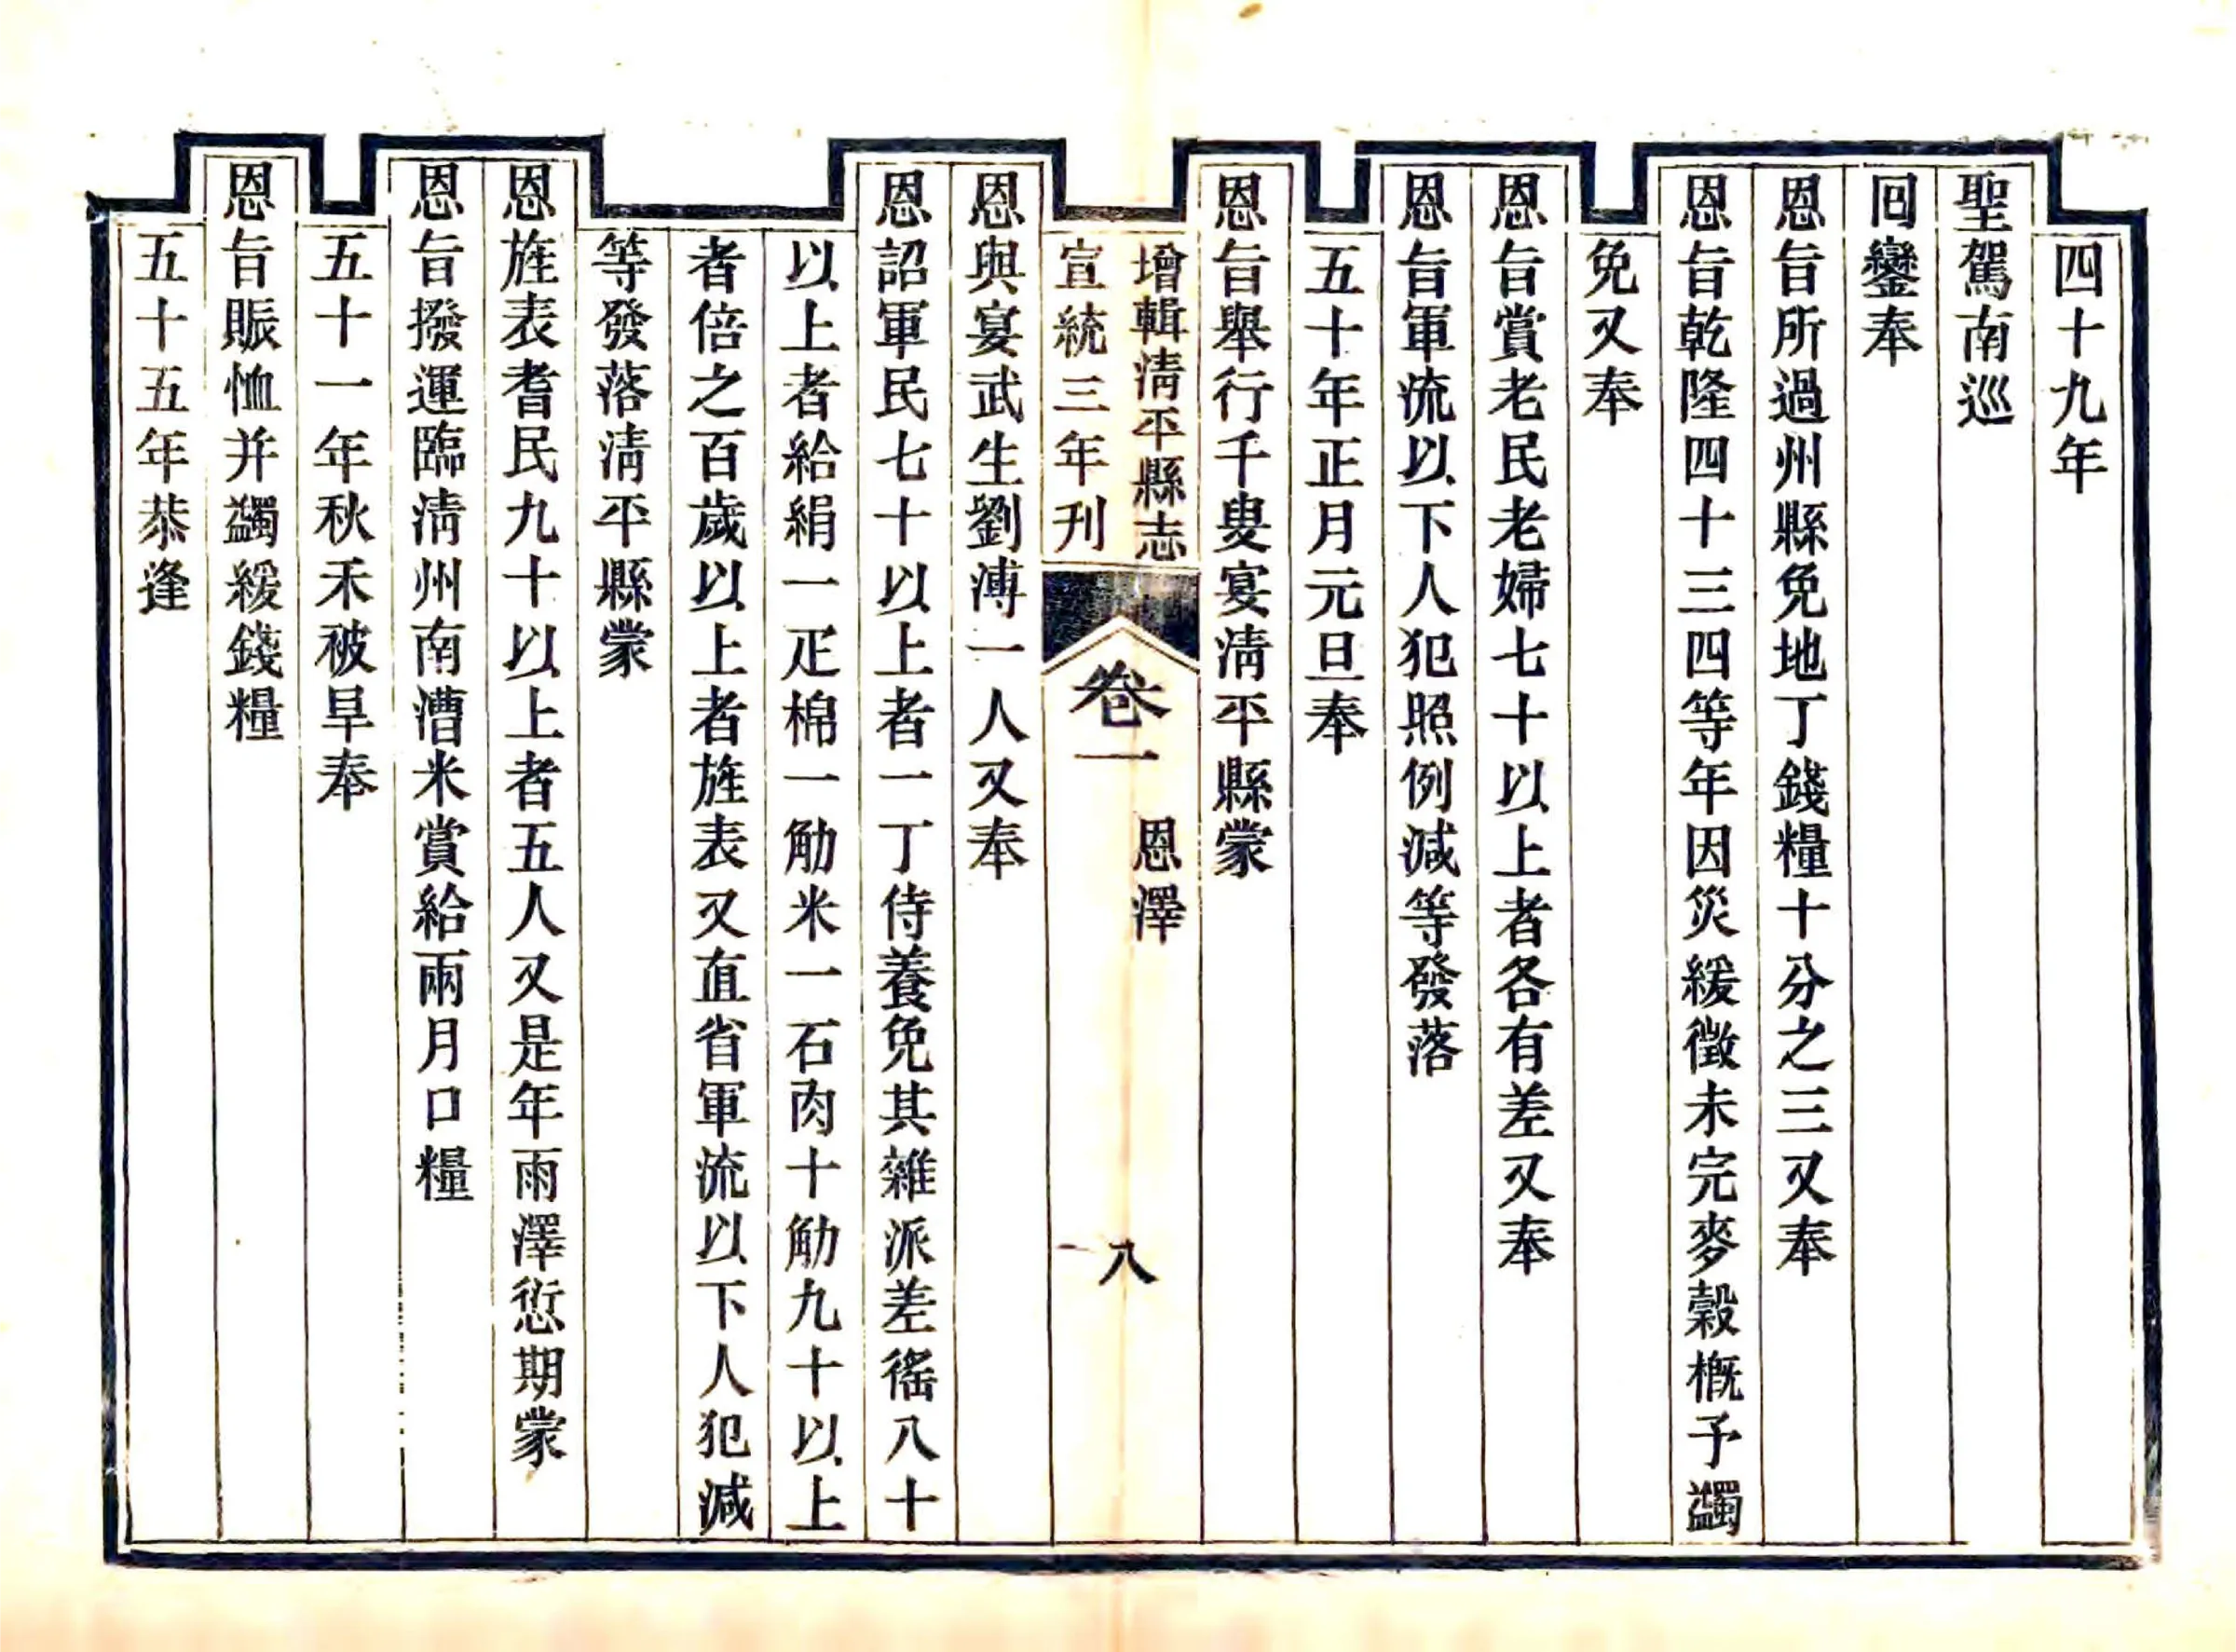 四十九年
聖駕南巡
回鑾奉
恩旨所過州縣免地丁錢糧十分之三又奉
恩旨乾隆四十三四等年因災緩徵未完麥穀槪予蠲
免又奉
恩旨賞老民老婦七十以上者各有差又奉
恩旨軍流以下人犯照例減等發落
五十年正月元旦奉
恩旨舉行千叟宴淸平縣蒙
增輯淸平縣志
宣統三年刊
卷一
恩澤
八
恩與宴武生劉溥一人又奉
恩詔軍民七十以上者一丁侍養免其雜派差徭八十
以上者給絹一疋棉一觔米一石肉十觔九十以上
者倍之百歲以上者旌表又直省軍流以下人犯減
等發落淸平縣蒙
恩旌表耆民九十以上者五人又是年雨澤愆期蒙
恩旨撥運臨淸州南漕米賞給兩月口糧
五十一年秋禾被旱奉
恩旨賑恤并蠲緩錢糧
五十五年恭逢